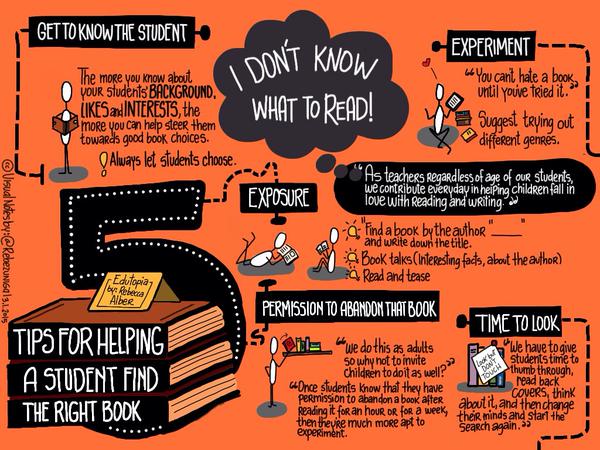 GET TO KNOW THE STUDENT
The more you know about
your students' BACKGROUND,
LIKES and INTERESTS, the
more you can help steer them
towards good book choices.
! Always let students choose.
I DON'T KNOW
WHAT TO READ!
EXPERIMENT
"You can't hate a book
until you've tried it."
Suggest trying out
different genres.
"As teachers regardless of age of our students,
we contribute everyday in helping children fall in
love with reading and writing."
EXPOSURE
"Find a book by the author "____"
and write down the title.
Book talks (Interesting facts, about the author)
Read and tease
5
Edutopia
by: Rebecca
Alber
TIPS FOR HELPING
A STUDENT FIND
THE RIGHT BOOK
PERMISSION TO ABANDON THAT BOOK
"We do this as adults
so why not to invite
children to do it as well?"
"Once students know that they have
permission to abandon a book after
reading it for an hour or for a week,
then they're much more apt to
experiment.
TIME TO LOOK
Look but
DON'T
TOUCH
"We have to give
students time to
thumb through,
read back
covers, think
about it, and then change
their minds and start the
search again."
© Visual Notes by: @Rebezuniga | 3.1.2015